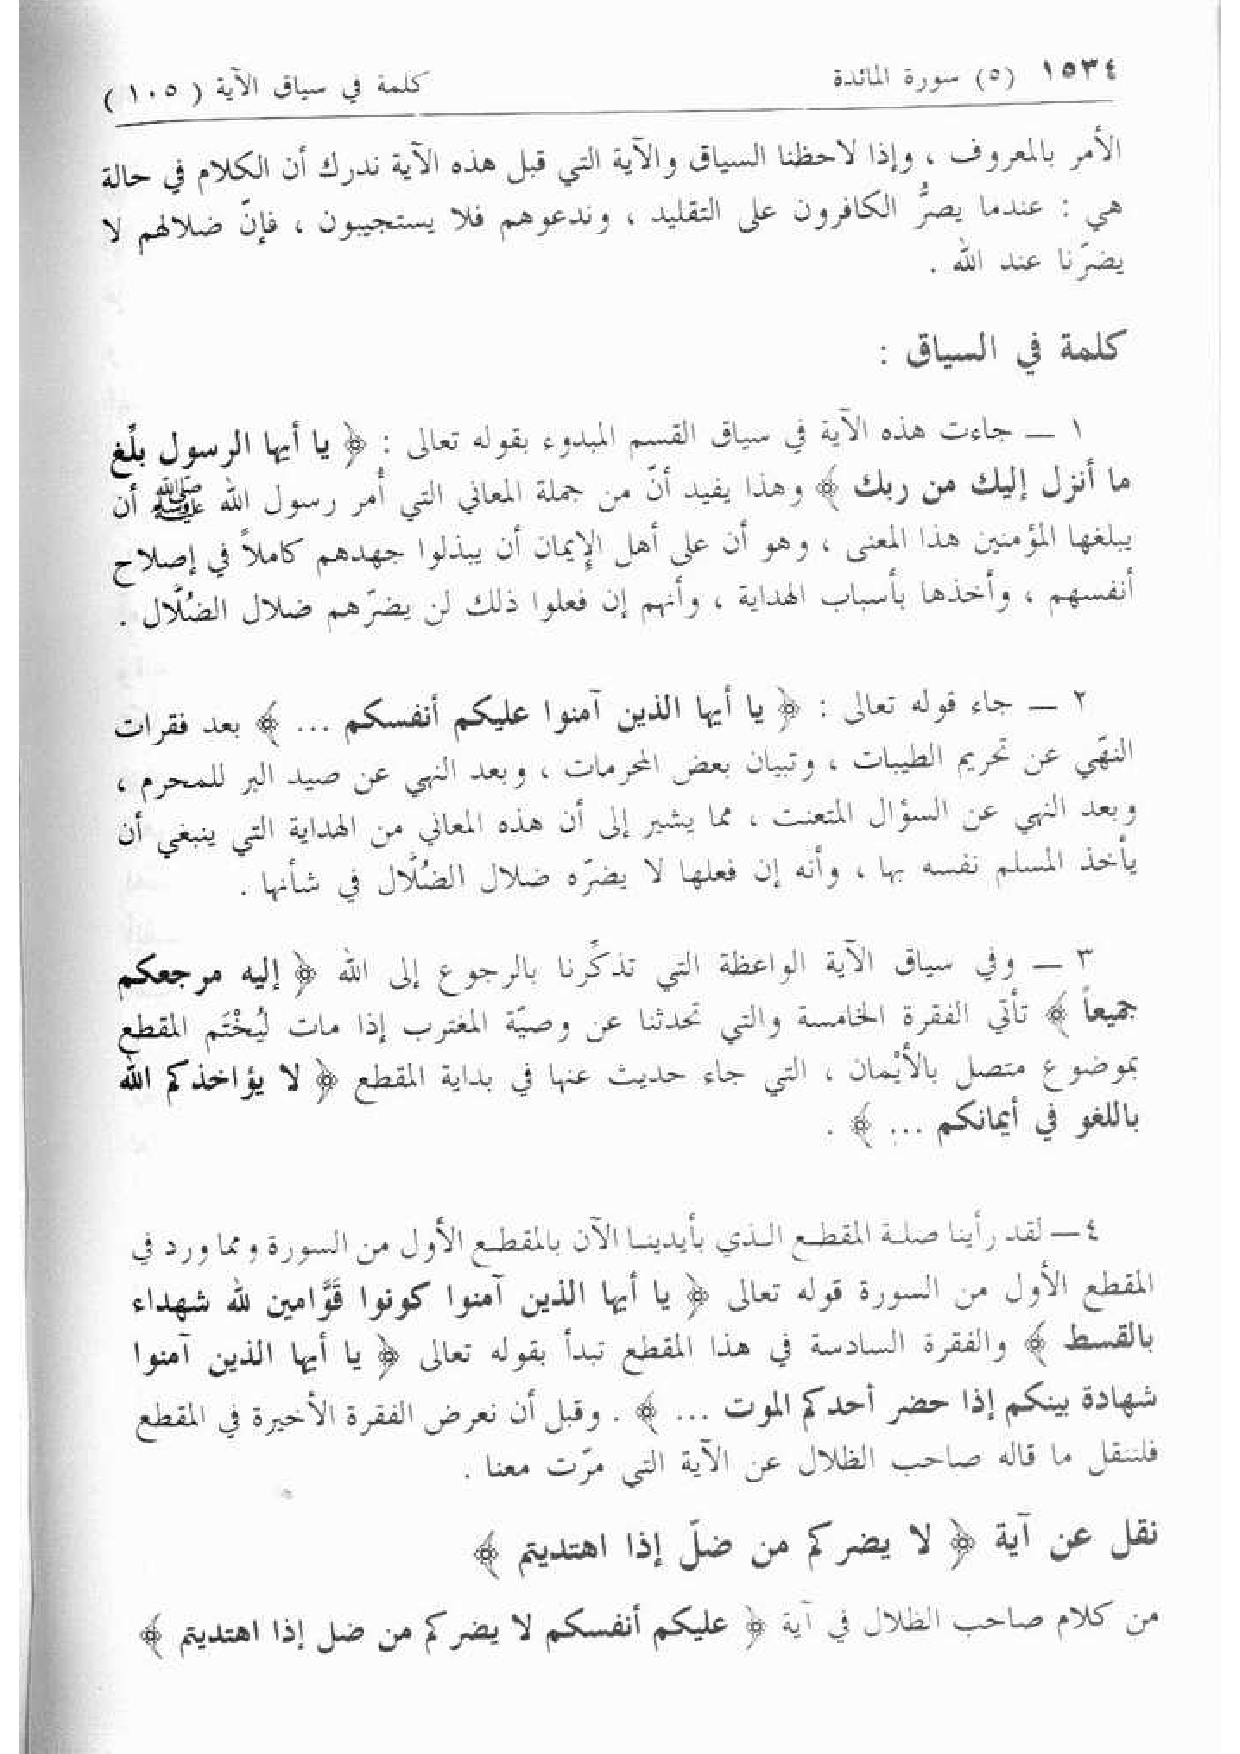 ١٥٣٤ (٥) سورة المائدة كلمة في سياق الآية (١٠٥)
الأمر بالمعروف ، وإذا لاحظنا السياق والآية التي قبل هذه الآية ندرك أن الكلام في حالة
هي : عندما يصرُّ الكافرون على التقليد ، وندعوهم فلا يستجيبون ، فإنّ ضلالهم لا
يضرّنا عند الله .
كلمة في السياق :
١ — جاءت هذه الآية في سياق القسم المبدوء بقوله تعالى : ﴿ يا أيها الرسول بلّغ
ما أنزل إليك من ربك ﴾ وهذا يفيد أنّ من جملة المعاني التي أُمر رسول الله ﷺ أن
يبلغها المؤمنين هذا المعنى ، وهو أن على أهل الإيمان أن يبذلوا جهدهم كاملاً في إصلاح
أنفسهم ، وأخذها بأسباب الهداية ، وأنهم إن فعلوا ذلك لن يضرّهم ضلال الضُلّال .
٢ — جاء قوله تعالى : ﴿ يا أيها الذين آمنوا عليكم أنفسكم ... ﴾ بعد فقرات
النهّي عن تحريم الطيبات ، وتبيان بعض المحرمات ، وبعد النهي عن صيد البر للمحرم ،
وبعد النهي عن السؤال المتعنت ، مما يشير إلى أن هذه المعاني من الهداية التي ينبغي أن
يأخذ المسلم نفسه بها ، وأنه إن فعلها لا يضرّه ضلال الضُلّال في شأنها .
٣ — وفي سياق الآية الواعظة التي تذكِّرنا بالرجوع إلى الله ﴿ إليه مرجعكم
جميعاً ﴾ تأتي الفقرة الخامسة والتي تحدثنا عن وصيّة المغترب إذا مات ليُخْتَم المقطع
بموضوع متصل بالأيْمان ، التي جاء حديث عنها في بداية المقطع ﴿ لا يؤاخذكم الله
باللغو في أيمانكم ... ﴾ .
٤ — لقد رأينا صلة المقطع الذي بأيدينا الآن بالمقطع الأول من السورة ومما ورد في
المقطع الأول من السورة قوله تعالى ﴿ يا أيها الذين آمنوا كونوا قَوَّامين لله شهداء
بالقسط ﴾ والفقرة السادسة في هذا المقطع تبدأ بقوله تعالى ﴿ يا أيها الذين آمنوا
شهادة بينكم إذا حضر أحدكم الموت ... ﴾ . وقبل أن نعرض الفقرة الأخيرة في المقطع
فلننقل ما قاله صاحب الظلال عن الآية التي مرّت معنا .
نقل عن آية ﴿ لا يضركم من ضلّ إذا اهتديتم ﴾
من كلام صاحب الظلال في آية ﴿ عليكم أنفسكم لا يضركم من ضل إذا اهتديتم ﴾